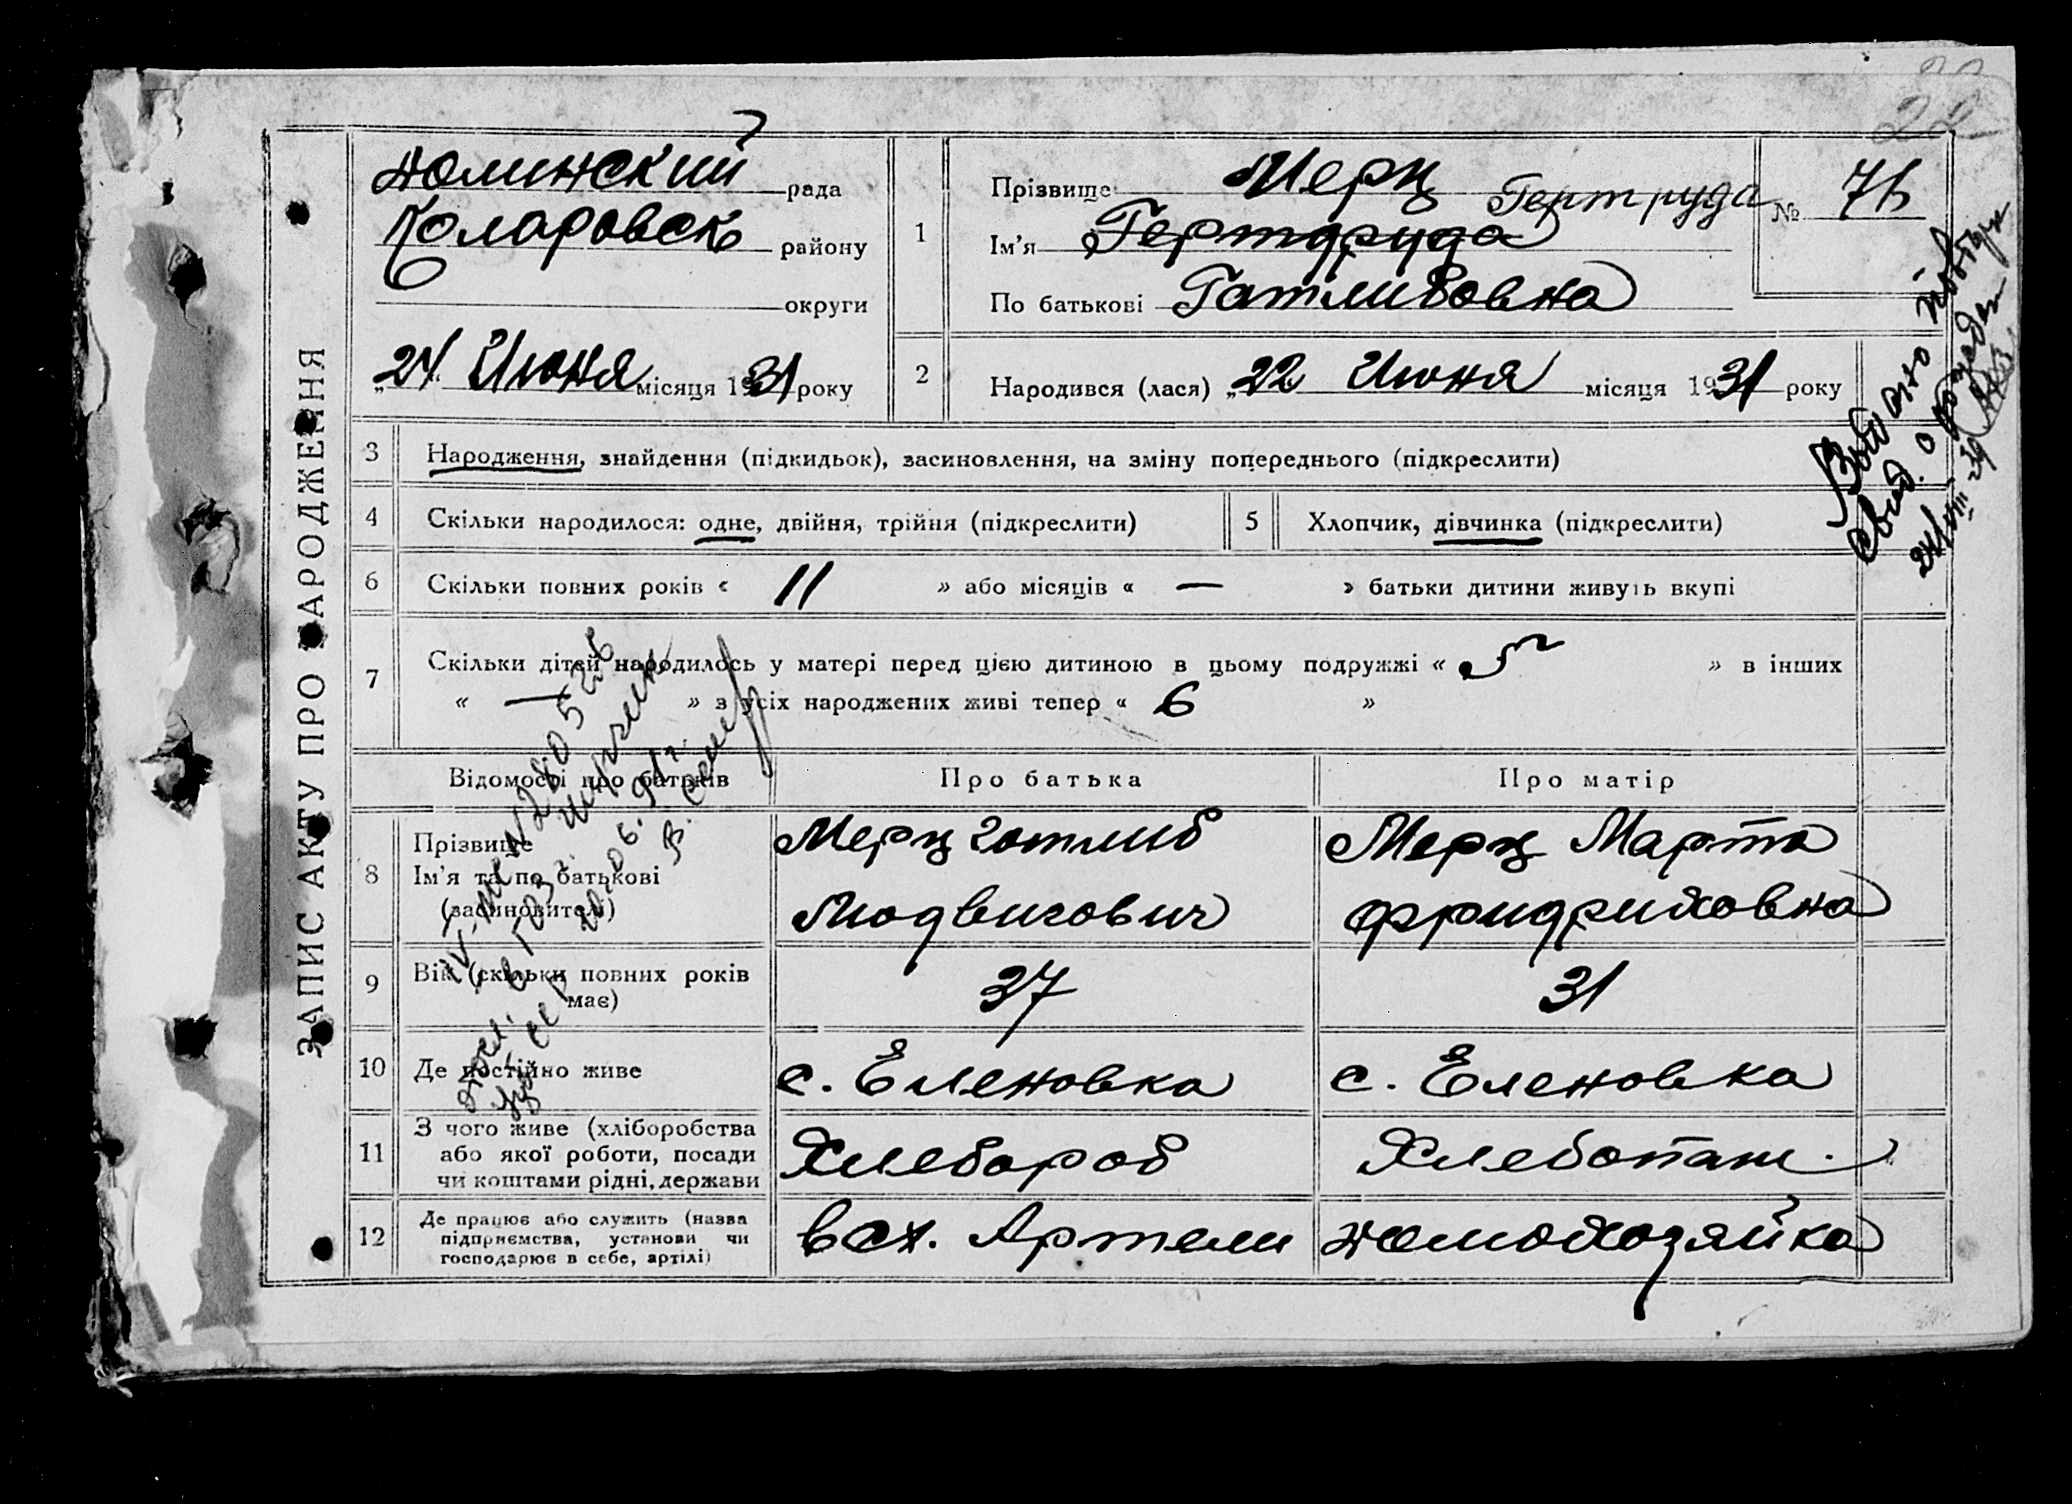 22
ЗАПИС АКТУ ПРО НАРОДЖЕННЯ
Долинский рада
Коларовск району
округи
„24“ Июня місяця 1931 року
1
Прізвище Мерц
Гертруда
Ім'я Гертдруда
По батькові Гатлибовна
№ 76
2
Народився (лася) „22 Июня місяця 1931 року
Выдано повторн
свид. о рожден
24/VIII 39
3 Народження, знайдення (підкидьок), засиновлення, на зміну попереднього (підкреслити)
4 Скільки народилося: одне, двійня, трійня (підкреслити)
5 Хлопчик, дівчинка (підкреслити)
6 Скільки повних років « 11 » або місяців « — » батьки дитини живуть вкупі
7 Скільки дітей народилось у матері перед цією дитиною в цьому подружжі « 5 » в інших
« — » з усіх народжених живі тепер « 6 »
Відомості про батьків
Про батька
Про матір
8 Прізвище
Ім'я та по батькові
(засиновителі)
Мерц Готлиб
Людвигович
Мерц Марта
Фридриховна
9 Вік (скільки повних років
має)
37
31
10 Де постійно живе
с. Еленовка
с. Еленовка
11 З чого живе (хліборобства
або якої роботи, посади
чи коштами рідні, держави
Хлебороб
Хлебопаш.
12 Де працює або служить (назва
підприємства, установи чи
господарює в себе, артілі)
в сх. Артели
домохозяйка